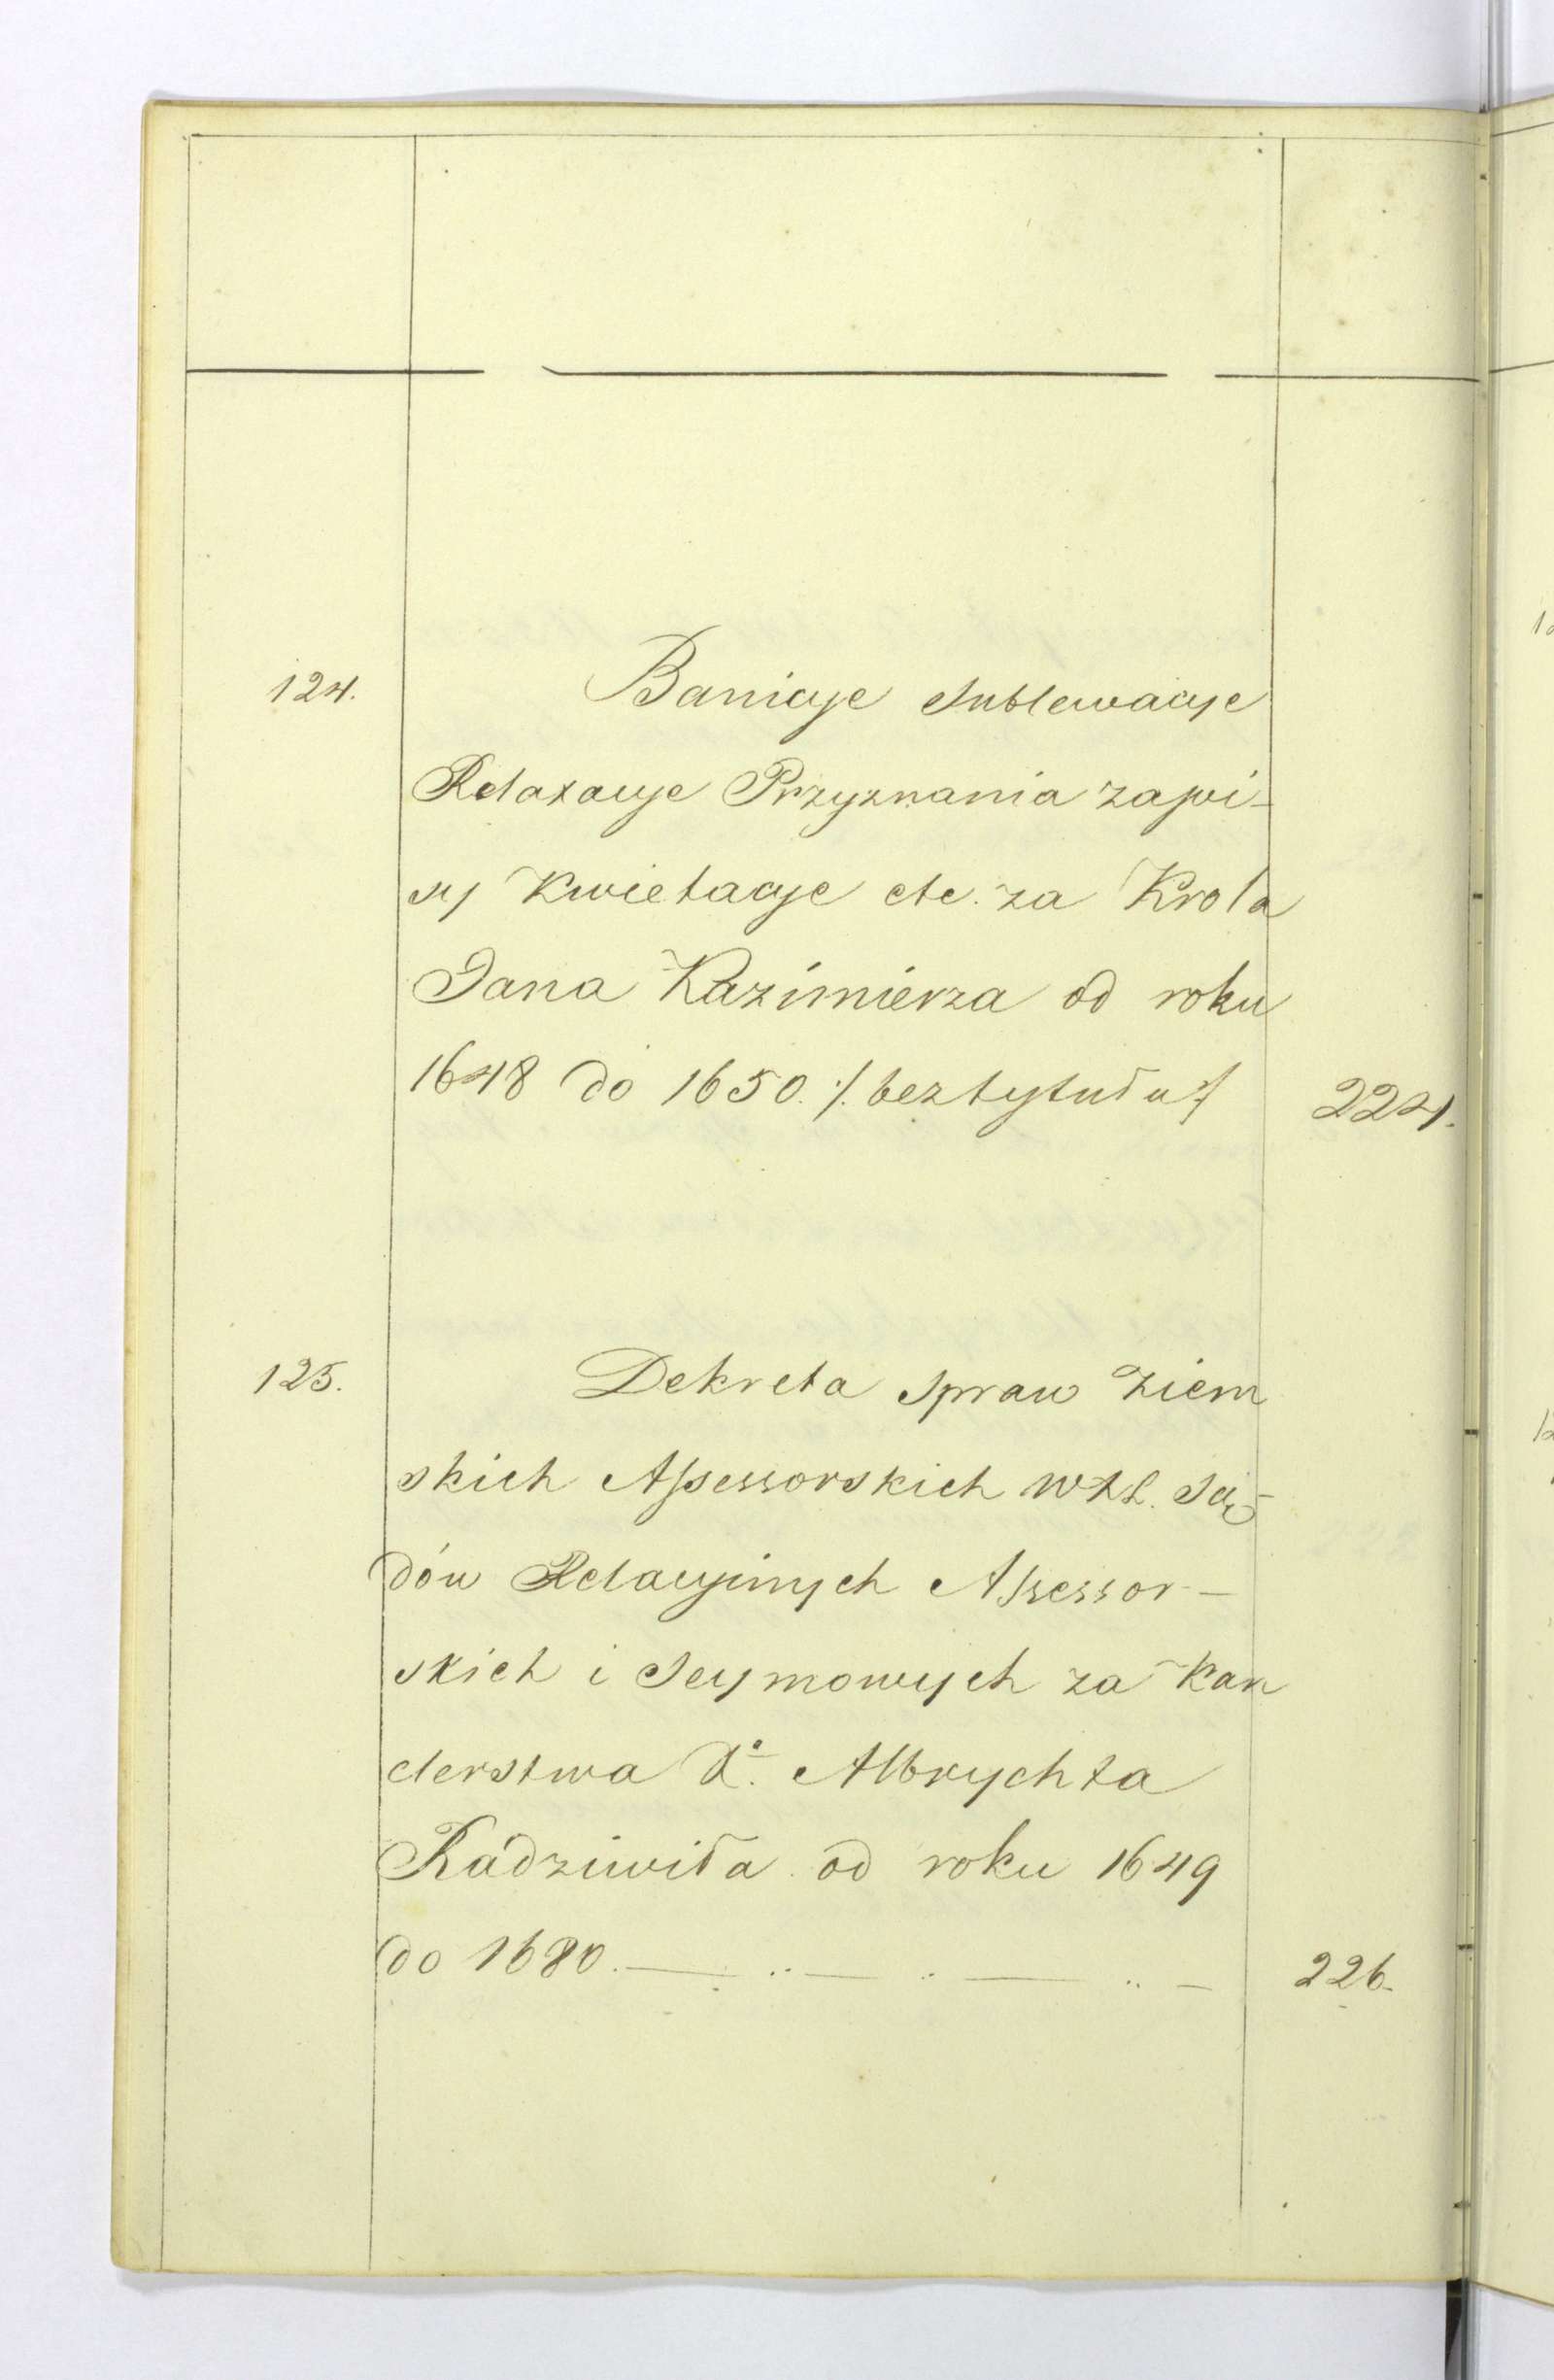 124. Banicye Sublewacye
Relaxacye Przyznania zapi-
sy Kwietacye etc. za Krola
Jana Kazimierza od roku
1648 do 1650. /. bez tytułu /. 224.
125. Dekreta Spraw Ziem
skich Assessorskich WXL. Są-
dów Relacyinych Assessor-
skich i Seymowych za Kan
clerstwa X. Albrychta
Radziwiła od roku 1649
do 1680. 226.